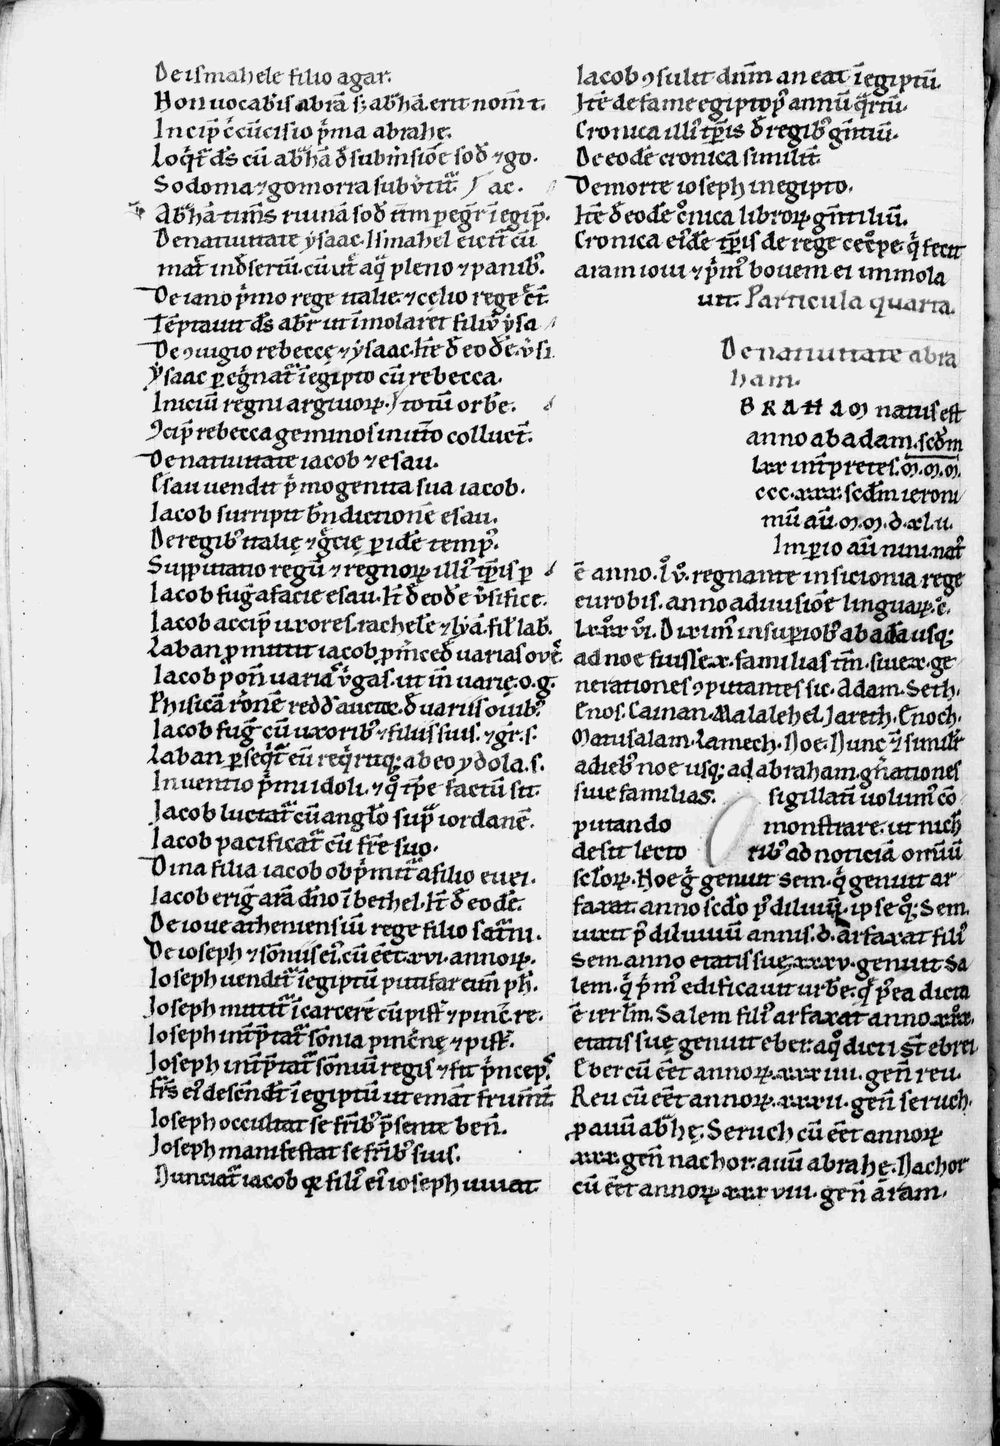 De ismahele filio agar.
Non uocab̄is abrā s; abͬhā. erit nom̄ t.
Incip̄ c̄cūcisio p̍ma abrahe.
Loq̍t͛ ds̄ cū abͬhā đ subuͥsiōe sođ ⁊ go.
Sodoma ⁊ gomorra subu̍tit͛. ac.
Abͬhā tim̄s ruinā sođ
De natiuitate ysaac. Ismahel eicit͛ cū
mat͛ in đsertū. cū ut͛ aq̄ pleno ⁊ panib᾿.
De iano p̍mo rege italie. ⁊ celio rege c̍t̄.
Tēptauit ds̄ abr̄ ut īmolaret filiū ysa
De ꝯiugio rebecce ⁊ ysaac. It̄e đ eođe. ysi.
Ysaac pegͥnat͛ ī egipto cū rebecca.
Iniciū regni argiuoꝝ. totū orbe.
ꝯcip̄ rebecca geminos in utō colluct̄.
De natiuitate iacob ⁊ esau.
Esau uendit p̍mogenita sua iacob.
Iacob surripit bn̄dictionē esau.
De regib᾿ italię ⁊ gͥcię p idē temp᾿.
Supputatio regū ⁊ regnoꝝ illi᾿ tp̄is p
Iacob fug̍ a facie esau. It̄ đ eođe ysi fice.
Iacob accip̄ uxores. rachelē ⁊ lyā. fil̍ lab.
Laban pmittit iacob p̍inceđ uarias oues
Iacob pon̄ uaria u̍gas. ut in̄ uarię. o. g.
Phisicā rōnē redd̍ auctor. đ uariis ouib᾿.
Iacob fug̍ cū uxorib᾿ ⁊ filiis suis. ⁊ gr̍. s.
Laban pseq̍t͛ eū req̍ritq; ab eo ydola. s.
Inuentio p̍mi idoli. ⁊ qͦ tp̄e factū sit.
Iacob luctat͛ cū angl̄o sup̄ iordanē.
Iacob pacificat͛ cū fr̄e suo.
Dina filia iacob opp̍mit͛ a filio euei.
Iacob erig̍ arā dn̄o ī bethel. It̄ đ eođe.
De ioue atheniensiū rege filio sat͛ni.
De ioseph ⁊ sōniis ei᾿. cū ēēt xvi. annoꝝ.
Ioseph uendit͛ ī egiptū putifar eun̄ ph̄.
Ioseph mittit͛ ī carcerē cū pist͛ ⁊ pinc̄ re.
Ioseph int̄p̄tat͛ sōnia pinc̄nę ⁊ pist͛.
Ioseph int̄p̄tat͛ sōniū regis ⁊ fit p̍ncep᾿.
Frs̄ ei᾿ descn̄dt̄ ī egiptū ut emāt frum̄t̄.
Ioseph occultat se fr̄ib᾿ p̄sente ben̄.
Ioseph manifestat se fr̄ib᾿ suis.
Nunciat͛ iacob qͥ fili᾿ ei᾿ ioseph uiuat.
Iacob ꝯsulit dn̄m an eat ī egiptū.
It̄e de fame egipto p᾿ annū q̄rtū.
Cronica illi᾿ tp̄is đ regib᾿ gn̄tiū.
De eođe cronica similit͛.
De morte ioseph in egipto.
It̄e đ eođe cͦnica libroꝝ gn̄tiliū.
Cronica ei᾿dē tp̄is de rege cecͦpe. q̍ fecit
aram ioui ⁊ p̍m᾿ bouem ei immola
uit. Particula quarta.
De natiuitate abra
ham.
BRAHAM natus est
anno ab adam. scđm
lxx int̄pretes. m. m. m.
ccc. xxx. scđm ieroni
mū aū. m. m. d. xl. ii.
Imp̄io aū nini. nat͛
ē anno. lͦv. regnante in sicionia rege
eurobis. anno a diuisiōe linguaꝝ. e.
lxxx vi. Dixim᾿ in supiorib᾿ ab adā usq;
ad noe fuisse. x. familias tm̄. siue. x. ge
nerationes ꝯputantes sic. Adam. Seth.
Enos. Cainan. Malalehel. Iareth. Enoch.
Matusalam. Lamech. Noe. Nunc ⁊ similit͛
a dieb᾿ noe usq; ad abraham. gn̄ationes
siue familias. sigillatī uolum᾿ cō
putando monstrare. ut nich̍
desit lecto rib᾿ ad noticiā omniū
scl̄oꝝ. Noe g̍ genuit sem. q̍ genuit ar
faxat. anno scđo p᾿ diluuiū. ipse qͦ; Sem
uixit p᾿ diluuiū annis. d. Arfaxat fili᾿
Sem. anno etatis suę. xxxv. genuit Sa
lem. q̍ p̍m᾿ edificauit urbē. q̄ p᾿ea dicta
ē ierl̄m. Salem fili᾿ arfaxat anno. xxx.
etatis suę genuit eber. a qͦ dicti st̄ ebrei
Eber cū ēēt annoꝝ. xxxiiii. gen̄ reu.
Reu cū ēēt annoꝝ. xxxii. gen̄ seruch.
pauū abͬhę. Seruch cū ēēt annoꝝ
xxx. gen̄ nachor. auū abrahę. Nachor
cū ēēt annoꝝ xxxviii. gen̄ aram.